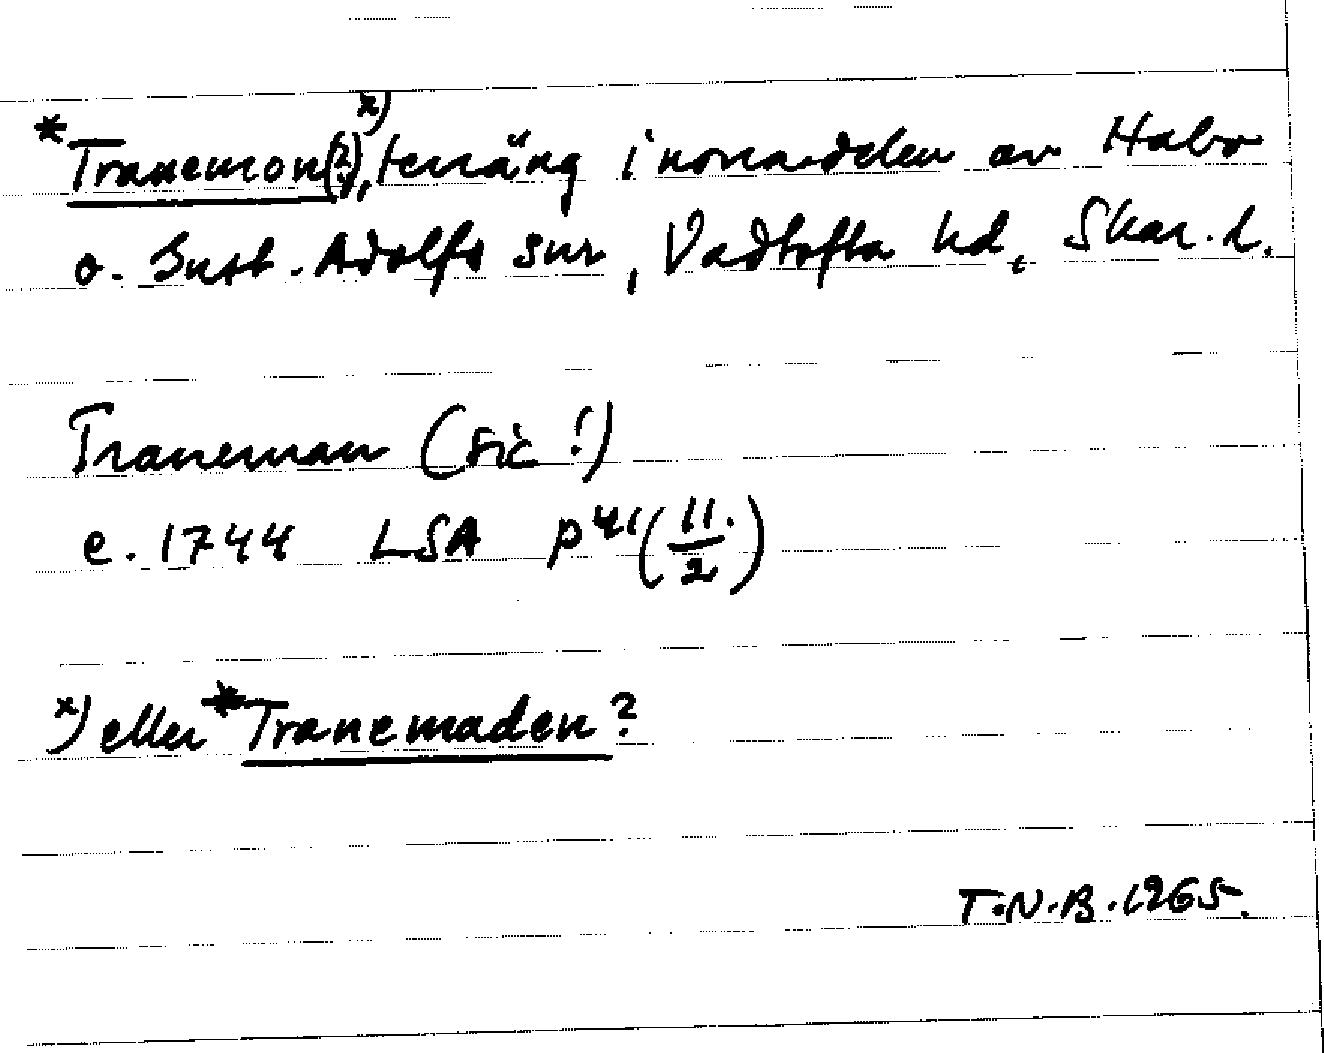 *Tranemon(?),x) terräng i norra delen av Habo
o. Gust. Adolfs snr, Vadtofta hd, Skar. l.
Traneman (sic!)
e. 1744 LSA P 41 (11./2)
x) eller *Tranemaden?
T.N.B. 1965.